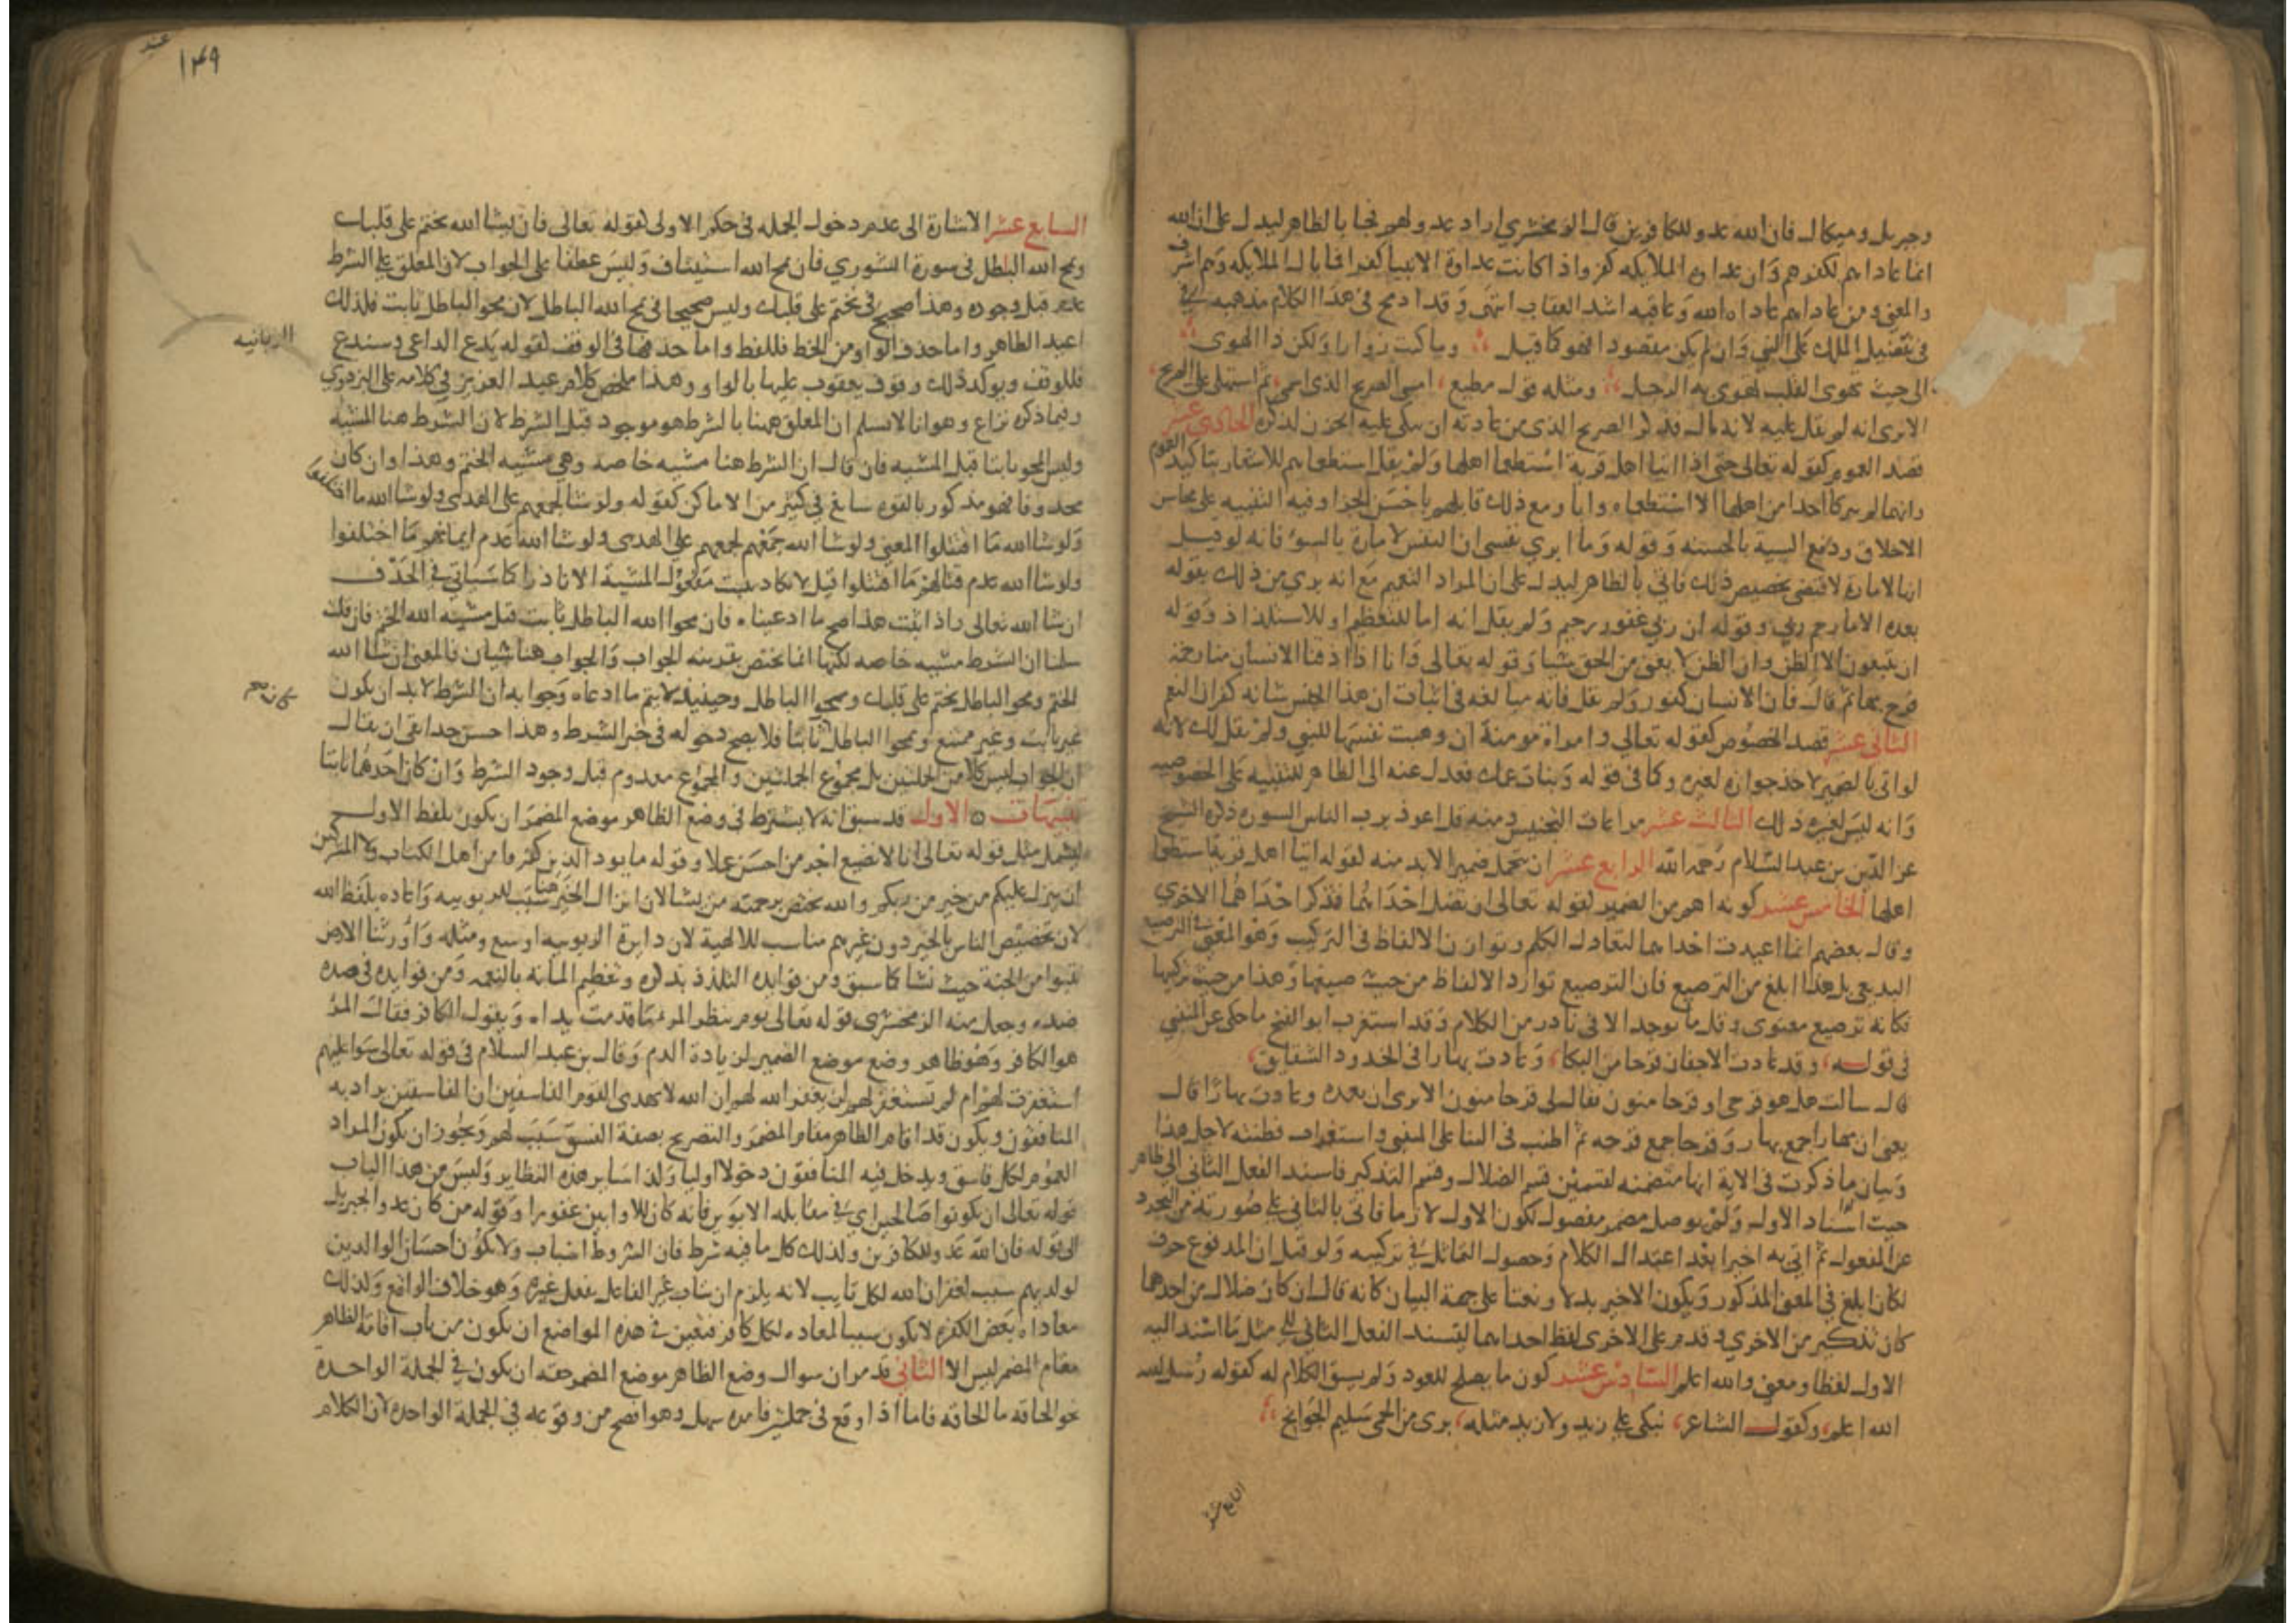 وجبريل وميكال فان الله عدو للكافرين قال الزمخشري اراد عدو لهم فجا بالظاهر ليدل على ان الله
انما عاداهم لكفرهم وان عداوة الملايكه كفر واذا كانت عداوة الانبيا كفرا فما بال الملايكه وهم اشرف
والمعنى ومن عاداهم عاداه الله وعاقبه اشد العقاب انتهى وقد ادمج في هذا الكلام مذهبه في
تفضيل الملك على النبي وان لم يكن مقصودا فهو كما قيل وما كنت زوارا ولكن ذا الهوى
الى حيث يهوى القلب تهوى به الرجل ومثله قول مطيع امسى الضريح الذي اسمى ثم استهلى على الضريح
الا ترى انه لم يقل عليه لانه ذكر الضريح الذي من عادته ان يبكى عليه الحزن لذكره الحادي عشر
قصد العموم كقوله تعالى حتى اذا اتيا اهل قرية استطعما اهلها ولم يقل استطعماهم للاشعار بتاكيد العموم
وانهما لم يتركا احدا من اهلها الا استطعماه وابا ومع ذلك قابلهم باحسن الجزا وفيه التنبيه على محاسن
الاخلاق ودفع السية بالحسنه وقوله وما ابري نفسي ان النفس لامارة بالسوء فانه لو قيل
انها لامارة لاقتضى تخصيص ذلك فاتى بالظاهر ليدل على ان المراد التعميم مع انه بري من ذلك بقوله
بعده الا ما رحم ربي وقوله ان ربي غفور رحيم ولم يقل انه اما للتعظيم او للاستلذاذ وقوله
ان يتبعون الا الظن وان الظن لا يغني من الحق شيا وقوله تعالى وانا اذا اذقنا الانسان منا رحمة
فرح بها ثم قال فان الانسان كفور ولم يقل فانه مبالغه في اثبات ان هذا الجنس شانه كفران النعم
الثاني عشر قصد الخصوص كقوله تعالى وامراة مومنة ان وهبت نفسها للنبي ولم يقل لك لانه
لو اتى بالضمير لاخذ جوازه لغيره وكما في قوله وبنات عمك فعدل عنه الى الظاهر للتنبيه على الخصوصيه
وانه ليس لغيره ذلك الثالث عشر مراعات التجنيس ومنه قل اعوذ برب الناس السورة ذكره الشيخ
عز الدين بن عبد السلام رحمه الله الرابع عشر ان يتحمل ضميرا لا بد منه كقوله اتيا اهل قرية استطعما
اهلها الخامس عشر كونه اهم من الضمير كقوله تعالى ان تضل احداهما فتذكر احداهما الاخرى
وقال بعضهم انما اعيدت احداهما لتعادل الكلم وتوازن الالفاظ في التركيب وهو المعنى في الترصيع
البديعي بل هذا ابلغ من الترصيع فان الترصيع توازن الالفاظ من حيث صيغها وهذا من حيث تركيبها
فكانه ترصيع معنوي وقل ما يوجد الا في نادر من الكلام وقد استغرب ابو الفتح ما حكى عن المتنبي
في قوله وقد عادت الاجفان قرحا من البكا وعادت بهارا في الخدود الشقايق
قال سالته هل هو قرحى او قرحا منون فقال لي قرحا منون الا ترى ان بعده وعادت بهارا قال
يعني ان بهارا جمع بهار وقرحا جمع قرحه ثم اطنب في الثنا على المتنبي واستغراب فطنته لاجل هذا
وبيان ما ذكرت في الاية انها متضمنه لقسمين قسم الضلال وقسم التذكير فاسند الفعل الثاني الى ظاهر
حيث اسناد الاول ولم يوصل مضمر مفصول لكون الاول لازما فاتى بالثاني على صورته من التجرد
عن المفعول ثم اتى به اخيرا بعد اعتدال الكلام وحصول التماثل في تركيبه ولو قيل ان المرفوع حرف
لكان ابلغ في المعنى المذكور ويكون الاخير بدلا او نعتا على جهة البيان كانه قال ان كان ضلال من احدهما
كان تذكير من الاخرى وقدم على الاخرى لفظ احداهما ليسند الفعل الثاني الى مثل ما اسند اليه
الاول لفظا ومعنى والله اعلم السادس عشر كون ما يصلح للعود ولم يسق الكلام له كقوله رسل الله
الله اعلم وكقول الشاعر تبكي على زيد ولا زيد مثله برى من الحمى سليم الجوانح
السابع عشر
عند
١٤٩
السابع عشر الاشارة الى عدم دخول الجمله في حكم الاولى كقوله تعالى فان يشا الله يختم على قلبك
ويمح الله الباطل في سورة الشورى فان يمح الله استيناف وليس عطفا على الجواب لان المعلق على الشرط
عدم قبل وجوده وهذا صحيح في يختم على قلبك وليس صحيحا في يمح الله الباطل لان محو الباطل ثابت فلذلك
اعيد الظاهر واما حذف الواو من الخط فللفظ واما حذفها في الوقف كقوله يدع الداعي وسندع
الزبانيه
فللوقف ويوكد ذلك وقوف يعقوب عليها بالواو وهذا ملخص كلام عبد العزيز في كلامه على البزدوي
وفيما ذكره نزاع وهو انا لا نسلم ان المعلق ههنا بالشرط هو موجود قبل الشرط لان الشرط هنا المشيه
وليس المحو ثابتا قبل المشيه فان قال ان الشرط هنا مشيه خاصه وهي مشيه الختم وهذا وان كان
محذوفا فهو مذكور بالقوه سائغ في كثير من الاماكن كقوله ولو شا لجمعهم على الهدى ولو شا الله ما اقتتلوا
ولو شا الله ما اقتتلوا المعنى ولو شا الله جمعهم لجمعهم على الهدى ولو شا الله عدم ايمانهم ما اختلفوا
ولو شا الله عدم قتالهم ما اقتتلوا قيل لا يكاد يثبت مفعول المشيه الا نادرا كما سياتي في الحذف
ان شا الله تعالى واذا ثبت هذا صح ما ادعيناه فان محو الله الباطل ثابت قبل مشيه الله الختم فان قلت
سلمنا ان الشرط مشيه خاصه لكنها انما تختص بقرينه الجواب والجواب هنا شيان فالمعنى ان يشا الله
الختم ومحو الباطل يختم على قلبك ويمحو الباطل وحينيذ لا يتم ما ادعاه وجوابه ان الشرط لا بد ان يكون
غير ثابت وغير ممتنع ويمحوا الباطل ثابتا فلا يصح دخوله في خبر الشرط وهذا حسن جدا بقي ان يقال
كان صح
ان الجواب ليس كلا من الجملتين بل مجموع الجملتين والمجموع معدوم قبل وجود الشرط وان كان احدهما ثابتا
تنبيهات الاول قد سبق انه لا يشترط في وضع الظاهر موضع المضمر ان يكون بلفظ الاول
ليشمل مثل قوله تعالى انا لا نضيع اجر من احسن عملا وقوله ما يود الذين كفروا من اهل الكتاب ولا المشركين
ان ينزل عليكم من خير من ربكم والله يختص برحمته من يشا لان انزال الخير هنا سبب للربوبيه واعاده بلفظ الله
لان تخصيص الناس بالخير دون غيرهم مناسب للالهية لان دايرة الربوبيه اوسع ومثله واورثنا الارض
نتبوا من الجنة حيث نشا كما سبق ومن فوايده التلذذ بذكره وتعظيم المنانه بالنعمه ومن فوايده قصده
ضده وجعل منه الزمخشري قوله تعالى يوم ينظر المر ما قدمت يداه ويقول الكافر فقال المر
هو الكافر وهو ظاهر وضع موضع الضمير لزيادة الذم وقال بن عبد السلام في قوله تعالى سوا عليهم
استغفرت لهم ام لم تستغفر لهم لن يغفر الله لهم ان الله لا يهدى القوم الفاسقين ان الفاسقين يراد به
المنافقون ويكون قد اقام الظاهر مقام المضمر والتصريح بصفة الفسق سبب لهم ويجوز ان يكون المراد
العموم لكل فاسق ويدخل فيه المنافقون دخولا اوليا وكذا ساير هذه النظاير وليس من هذا الباب
قوله تعالى ان تكونوا صالحين اي في معامله الابوين فانه كان للاوابين غفورا وقوله من كان عدوا لجبريل
الى قوله فان الله عدو للكافرين وكذلك كل ما فيه شرط فان الشروط اسباب ولا يكون احسان الوالدين
لولديهم سبب لغفران الله لكل تايب لانه يلزم ان يثاب غير الفاعل بفعل غيره وهو خلاف الواقع وكذلك
معاداه بعض الكفرة لا يكون سببا لمعاداه كل كافر فتعين في هذه المواضع ان يكون من باب اقامة الظاهر
مقام المضمر ليس الا الثاني قد مر ان سوال وضع الظاهر موضع المضمر حقه ان يكون في الجملة الواحدة
نحو الحاقه ما الحاقه فاما اذا وقع في جملتين فامره سهل وهو افصح من وقوعه في الجملة الواحده لان الكلام